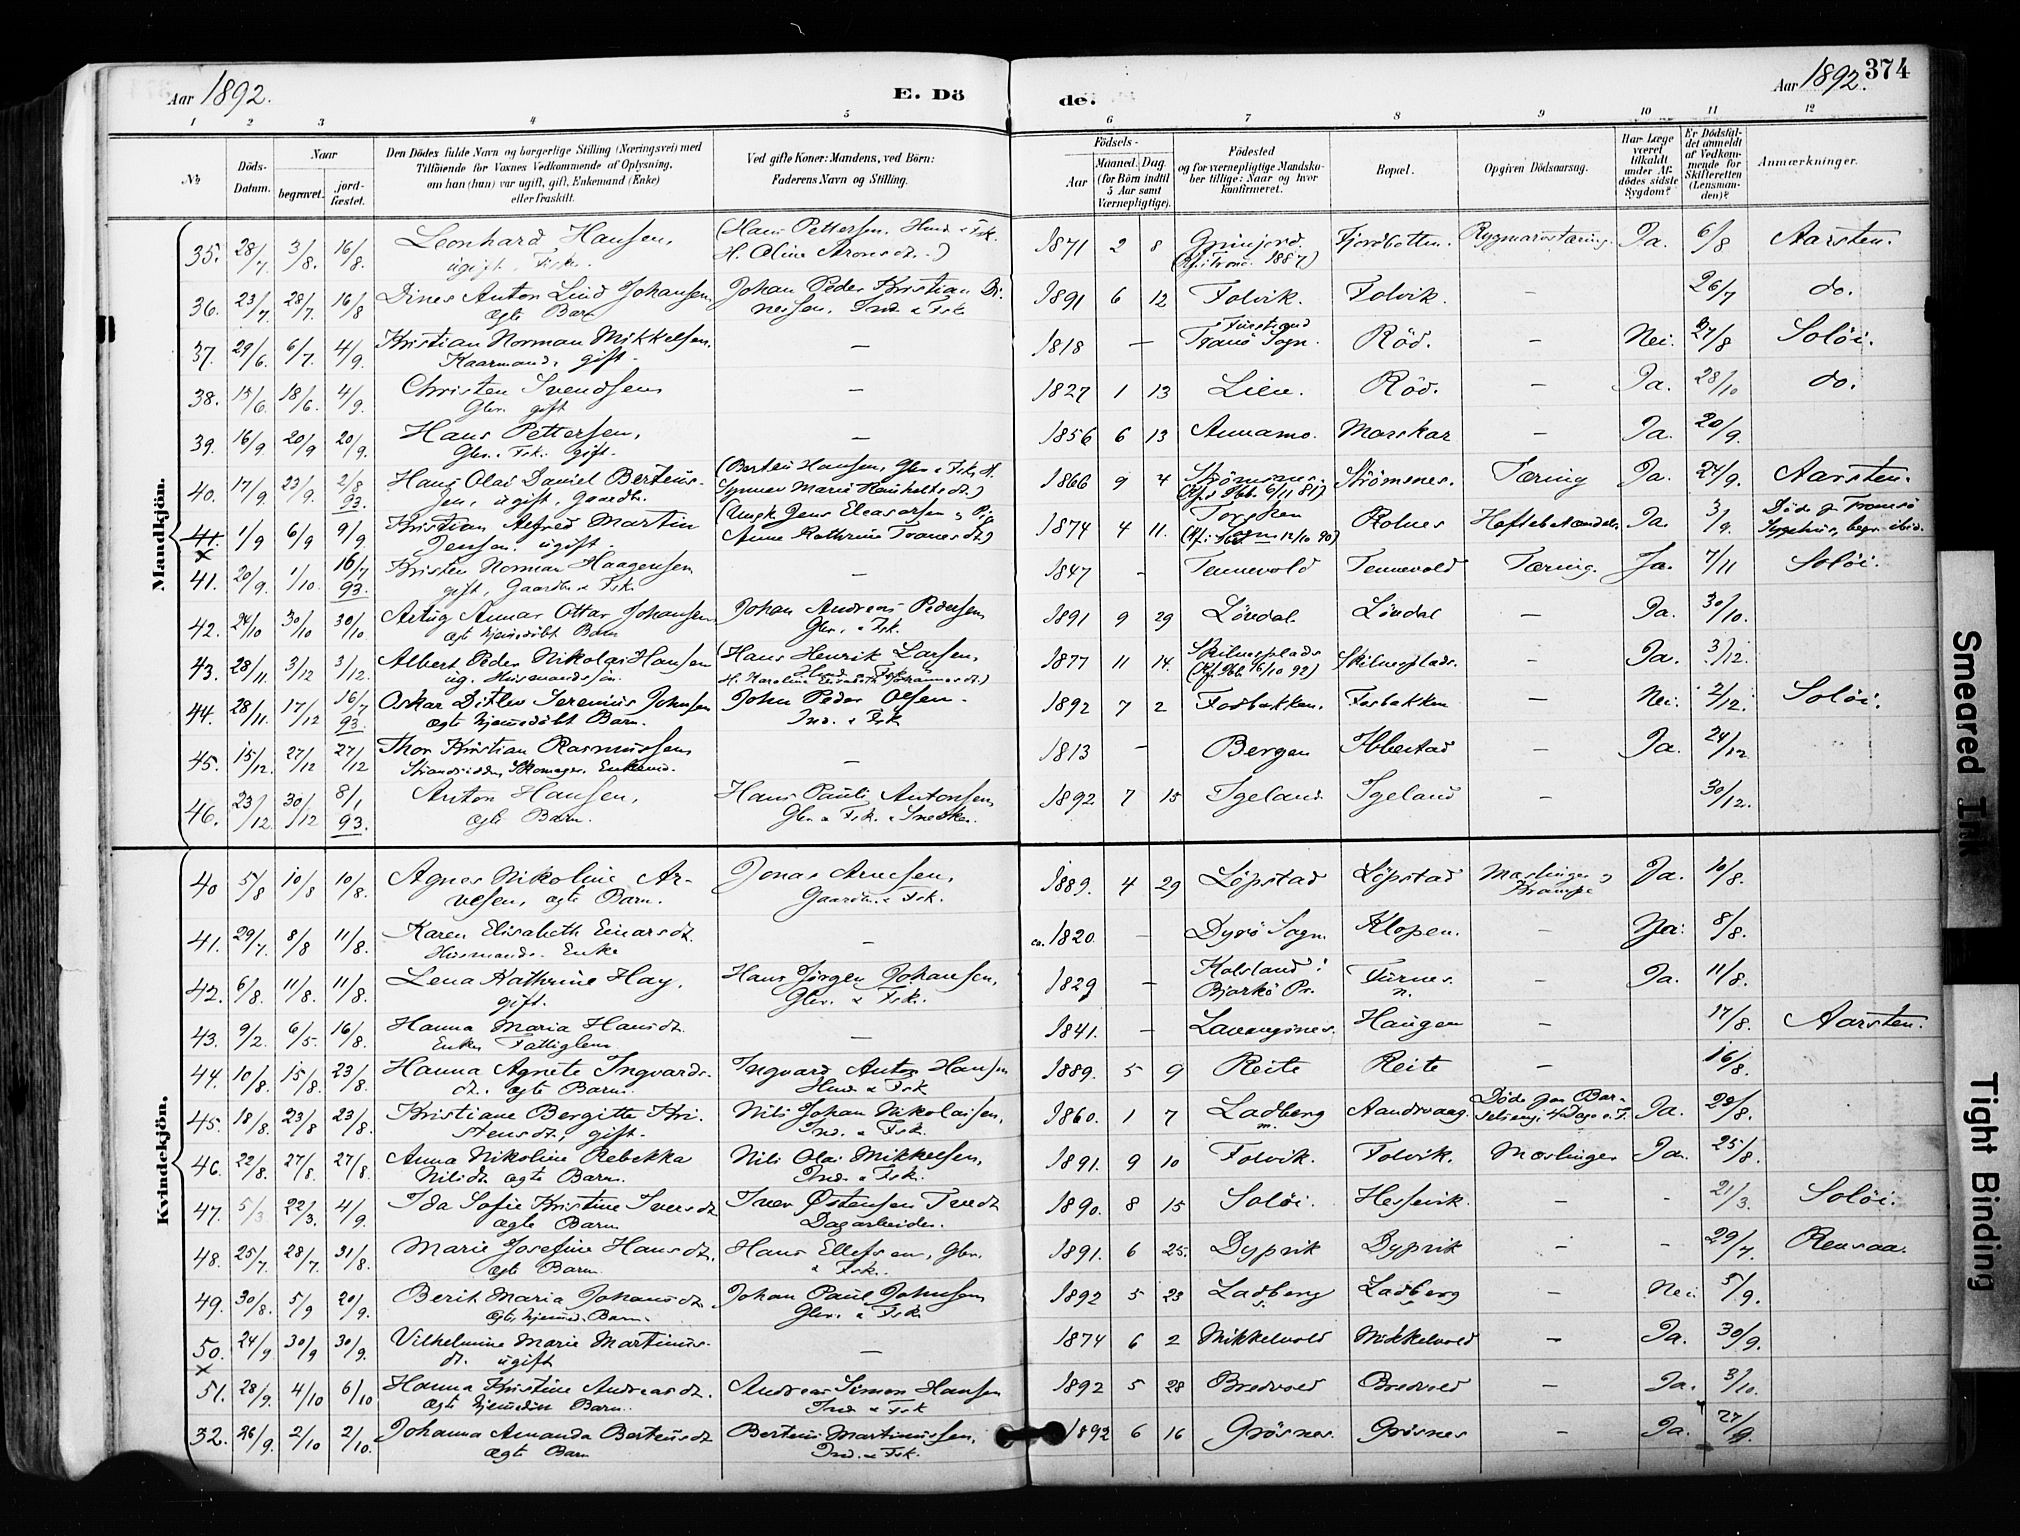 Aar 1892. E. Dö de. Aar 1892. 374
1 2 3 4 5 6 7 8 9 10 11 12
№
Döds-Datum.
Naar
begravet.
jord-fæstet.
Den Dödes fulde Navn og borgerlige Stilling (Næringsvei) med
Tilföiende for Voxnes Vedkommende af Oplysning,
om han (hun) var ugift, gift, Enkemand (Enke)
eller fraskilt.
Ved gifte Koner: Mandens, ved Börn:
Faderens Navn og Stilling.
Födsels-
Aar
Maaned. Dag.
(for Börn indtil
5 Aar samt
Værnepligtige).
Födested
og for værnepligtige Mandska-
ber tillige: Naar og hvor
konfirmeret.
Bopæl.
Opgiven Dödsaarsag.
Har Læge
været
tilkaldt
under Af-
dødes sidste
Sygdom?
Er Dödsfal-
det anmeldt
af Vedkom-
mende for
Skifteretten
(Lensman-
den)?
Anmærkninger.
Mandkjön.
35. 28/7 3/8. 16/8. Leonhard Hansen, (Hans Pettersen, Hmd & Fsk. 1871 2 8 Fjordbotten. Rygmarvstæring. Ja. 6/8 Aarsten.
ugift, Fsk. H. Oline Aronsdt.)
36. 23/7. 28/7. 16/8 Dines Anton Lind Johansen, Johan Peder Kristian Di- 1891 6 12 Folvik. Folvik. — 26/7 do.
ægte Barn nesen, Ind. & Fsk
37. 29/6. 6/7. 4/9. Kristian Norman Mikkelsen. — 1818 — Tranö Sogn. Röd. — Nei. 27/8 Solöi.
Kaarmand, gift.
38. 15/6. 18/6. 4/9. Christen Svendsen — 1827 1 13 Lien. Röd. — Ja. 28/10 do.
Gbr. gift
39. 16/9 20/9 20/9. Hans Pettersen, — 1856 6 13 Annamo. Marskar — Ja. 20/9.
Gbr. & Fsk. gift.
40. 17/9. 23/9. 2/8 93. Hans Olai Daniel Berteus- (Berteu Hansen, Gbr & Fsk, H. 1866 9 4 Strömsnes. Strömsnes. Tæring Ja. 24/9. Aarsten.
sen, ugift, Gaardb.
41. 1/9 6/9 9/9 Kristian Alfred Martin (Ungk. Jens Eleasarsen & Pig 1874 4 11. Torsken Rolnes Ja. 3/9. Döde p Tromsö
Jensen. ugift. Anne Kathrine Tranesdt) Sygehus, begr. ibid.
41. 20/9. 1/10 16/7 93. Kristen Norman Haagensen — 1847 - Tennevold Tennevold Tæring. Ja. 7/11 Solöi.
gift, Gaardbr. & Fsk.
42. 24/10 30/10 30/10. Artug Annar Ottar Johansen Johan Andreas Pedersen 1891 9 29 Lövdal. Lövdal — Ja. 30/10.
ægte hjemdöbt Barn Gbr. & Fsk.
43. 28/11. 3/12 3/12. Albert Peder Nikolai Hansen (Hans Henrik Larsen, 1877 11 14. Ja. 3/12.
ug. Husmandssön Hmd. & Fsk
44. 28/11. 17/12 16/7 93. Oskar Ditlev Jeremius Johnsen John Peder Olsen. 1892 7 2 Fosbakken. Fosbakken — Nei. 2/12. Solöi.
ægte hjemdöbt Barn. Ind. & Fsk
45. 15/12. 27/12 27/12 Thor Kristian Rasmussen — 1813 - Bergen Ibbestad — Ja. 24/12
Strandsidder, Skomager, Enkemd.
46. 23/12. 30/12 8/1 93. Anton Hansen, Hans Pauli Antonsen, 1892 7 15 Igeland Igeland — 30/12.
ægte Barn. Gbr. & Fsk. & Snedker.
Kvindekjön.
40 5/8 10/8 10/8. Agnes Nikoline Ar- Jonas Arnesen, 1889. 4 29 Löpstad Löpstad Meslinger & Ja. 10/8.
vesen, ægte Barn. Gaardbr. & Fsk. Krampe
41. 29/7. 8/8 11/8. Karen Elisabeth Einarsdt. — ca. 1820. - Dyrö Sogn. Klopen. — 8/8.
Husmands Enke
42. 6/8. 11/8. 11/8. Lena Kathrine Hay, Hans Jörgen Johansen, 1829 — Kalsland i Furnes. — Ja. 11/8.
gift. Gbr. & Fsk. Bjarkö Pr. n.
43. 9/2. 6/5. 16/8. Hanna Maria Hansdt. — 1841. — Lavangsnes. Haugen — 17/8. Aarsten.
Enke, Fattiglem
44. 10/8. 15/8. 23/8. Hanna Agnete Ingvards- Ingvard Anton Hansen 1889. 5 9 Reite Reite — 16/8.
dt. ægte Barn. Hmd & Fsk
45. 18/8. 23/8 23/8. Kristiane Bergitte Kri- Nils Johan Nikolaisen, 1860. 1 7 Ladberg Aandervaag. Döde paa Bar- Ja. 29/8.
stensdt, gift. Ind. & Fsk. m.
46. 22/8. 27/8. 27/8. Anna Nikoline Rebekka Nils Olai Mikkelsen, 1891. 9 10 Folvik. Folvik. Meslinger Ja. 25/8.
Nilsdt. ægte Barn. Ind. & Fsk.
47. 5/3. 22/3. 4/9. Ida Sofie Kristine Iversdt Iver Östensen Tvedt 1890. 8 15 Solöi. Hesvik. - - 21/3. Solöi.
ægte Barn Dagarbeider.
48. 25/7. 28/7. 31/8. Marie Josefine Hansdt. Hans Ellefsen, Gbr. 1891. 6 25. Dypvik Dypvik — - 29/7. Rensaa.
ægte Barn & Fsk.
49. 30/8. 5/9 20/9. Berit Maria Johansdt. Johan Paul Johnsen 1892 5 23 Ladberg Ladberg — Nei 5/9.
ægte, hjemd. Barn. Gbr. & Fsk
50. 24/9 30/9 30/9. Vilhelmine Marie Martinus- — 1874 6 2 Mikkelvold Mikkelvold — Ja. 30/9.
dt. ugift
51. 28/9. 4/10 6/10 Hanna Kristine Andreasdt. Andreas Simon Hansen 1892 5 28 Bredvold Bredvold — Ja. 3/10.
ægte hjemdöbt Barn. Ind & Fsk
32. 26/9. 2/10 2/10. Johanna Amanda Berteusdt Berteus Martinussen, 1892 6 16 Grösnes Grösnes — Ja. 27/9.
ægte Barn Ind. & Fsk.
Smeared Ink
Tight Binding